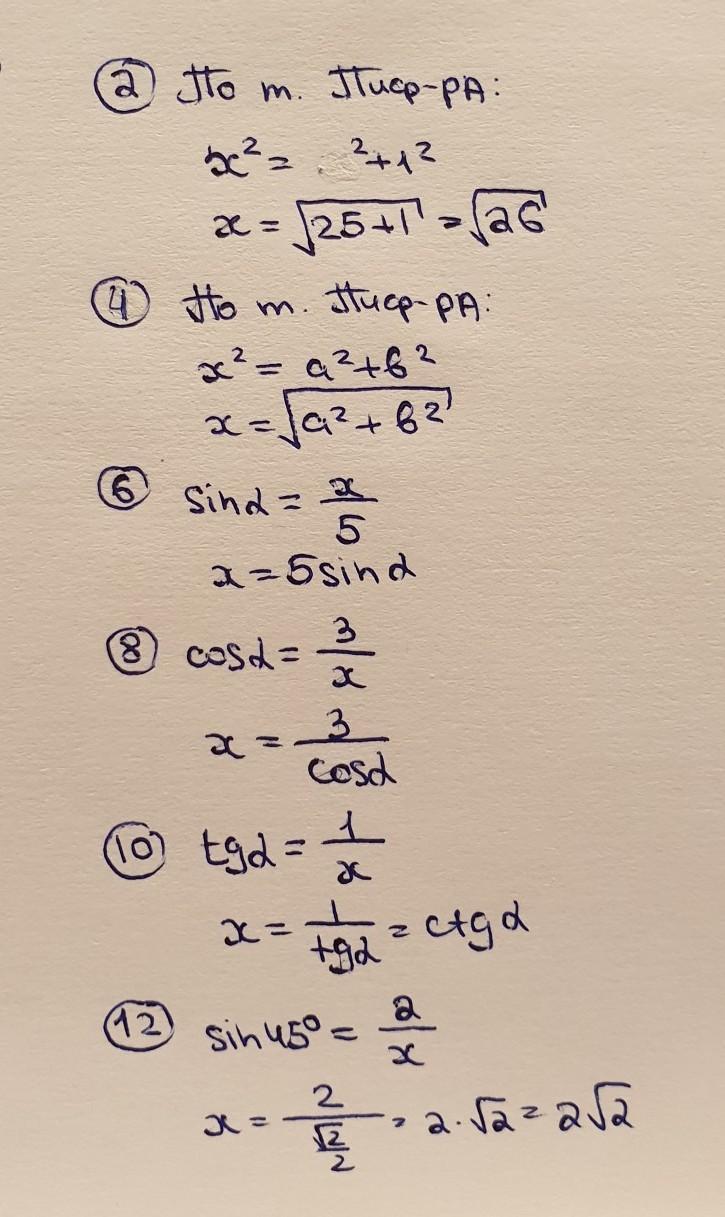 ② По т. Пиф-ра:
x² = ²+1²
x = √(25+1) = √26
④ По т. Пиф-ра:
x² = a²+b²
x = √(a²+b²)
⑥ sinα = x/5
x = 5sinα
⑧ cosα = 3/x
x = 3/cosα
⑩ tgα = 1/x
x = 1/tgα = ctgα
⑫ sin45° = 2/x
x = 2/(√2/2) = 2·√2 = 2√2